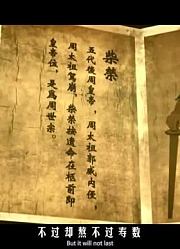 柴榮
五代後周皇帝，周太祖郭威內侄，
周太祖駕崩，柴榮接遺命在柩前即
皇帝位，是爲周世宗。
不过却熬不过寿数
But it will not last